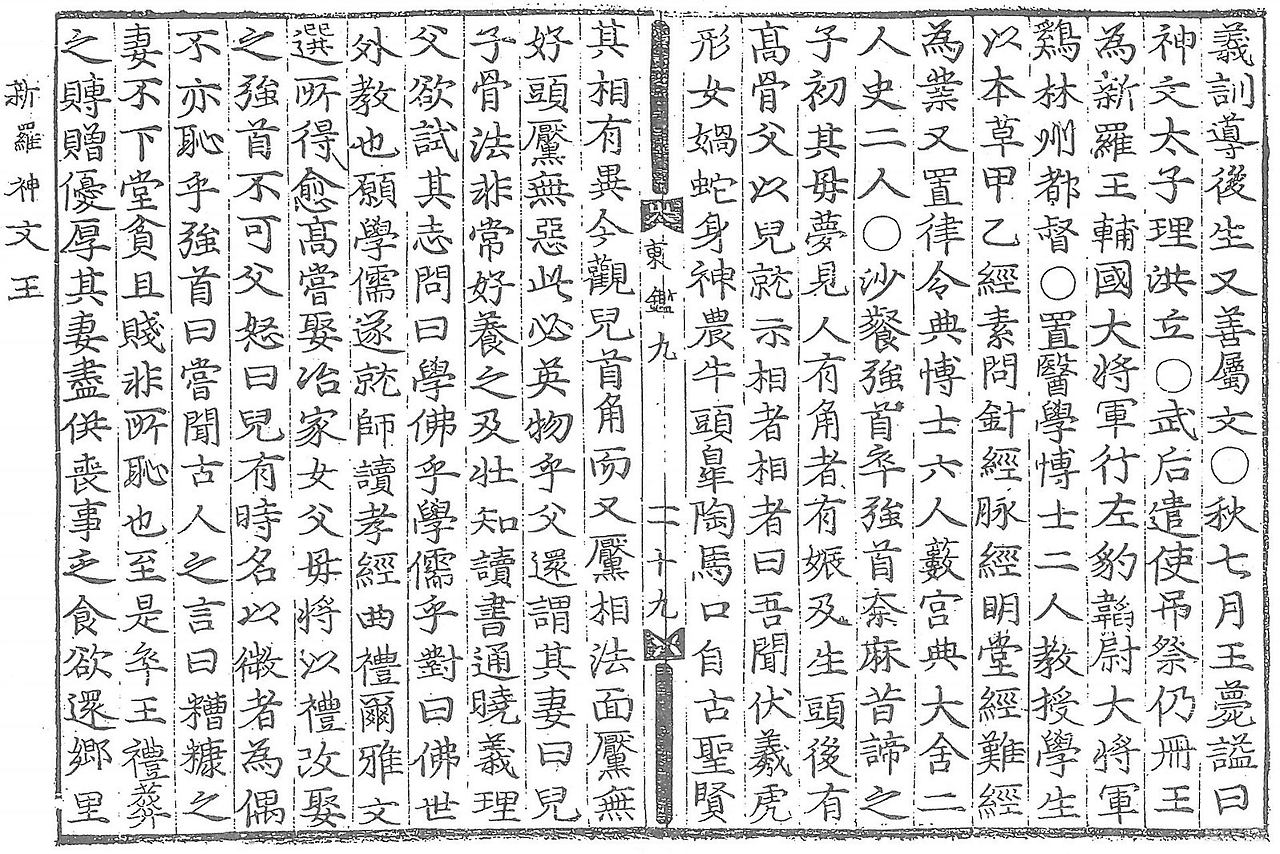 義訓導後生又善屬文○秋七月王薨諡曰
神文太子理洪立○武后遣使吊祭仍冊王
為新羅王輔國大將軍行左豹韜尉大將軍
鷄林州都督○置醫學博士二人教授學生
以本草甲乙經素問針經脉經明堂經難經
為業又置律令典博士六人藪宮典大舍二
人史二人○沙飱強首卒強首柰麻昔諦之
子初其母夢見人有角者有娠及生頭後有
高骨父以兒就示相者相者曰吾聞伏羲虎
形女媧蛇身神農牛頭皐陶馬口自古聖賢
東鑑九
二十九
其相有異今觀兒首角而又黶相法面黶無
好頭黶無惡此必英物乎父還謂其妻曰兒
子骨法非常好養之及壯知讀書通曉義理
父欲試其志問曰學佛乎學儒乎對曰佛世
外教也願學儒遂就師讀孝經曲禮爾雅文
選所得愈高嘗娶冶家女父母將以禮改娶
之強首不可父怒曰兒有時名以微者為偶
不亦恥乎強首曰嘗聞古人之言曰糟糠之
妻不下堂貧且賤非所恥也至是卒王禮葬
之賻贈優厚其妻盡供喪事乏食欲還鄉里
新羅神文王